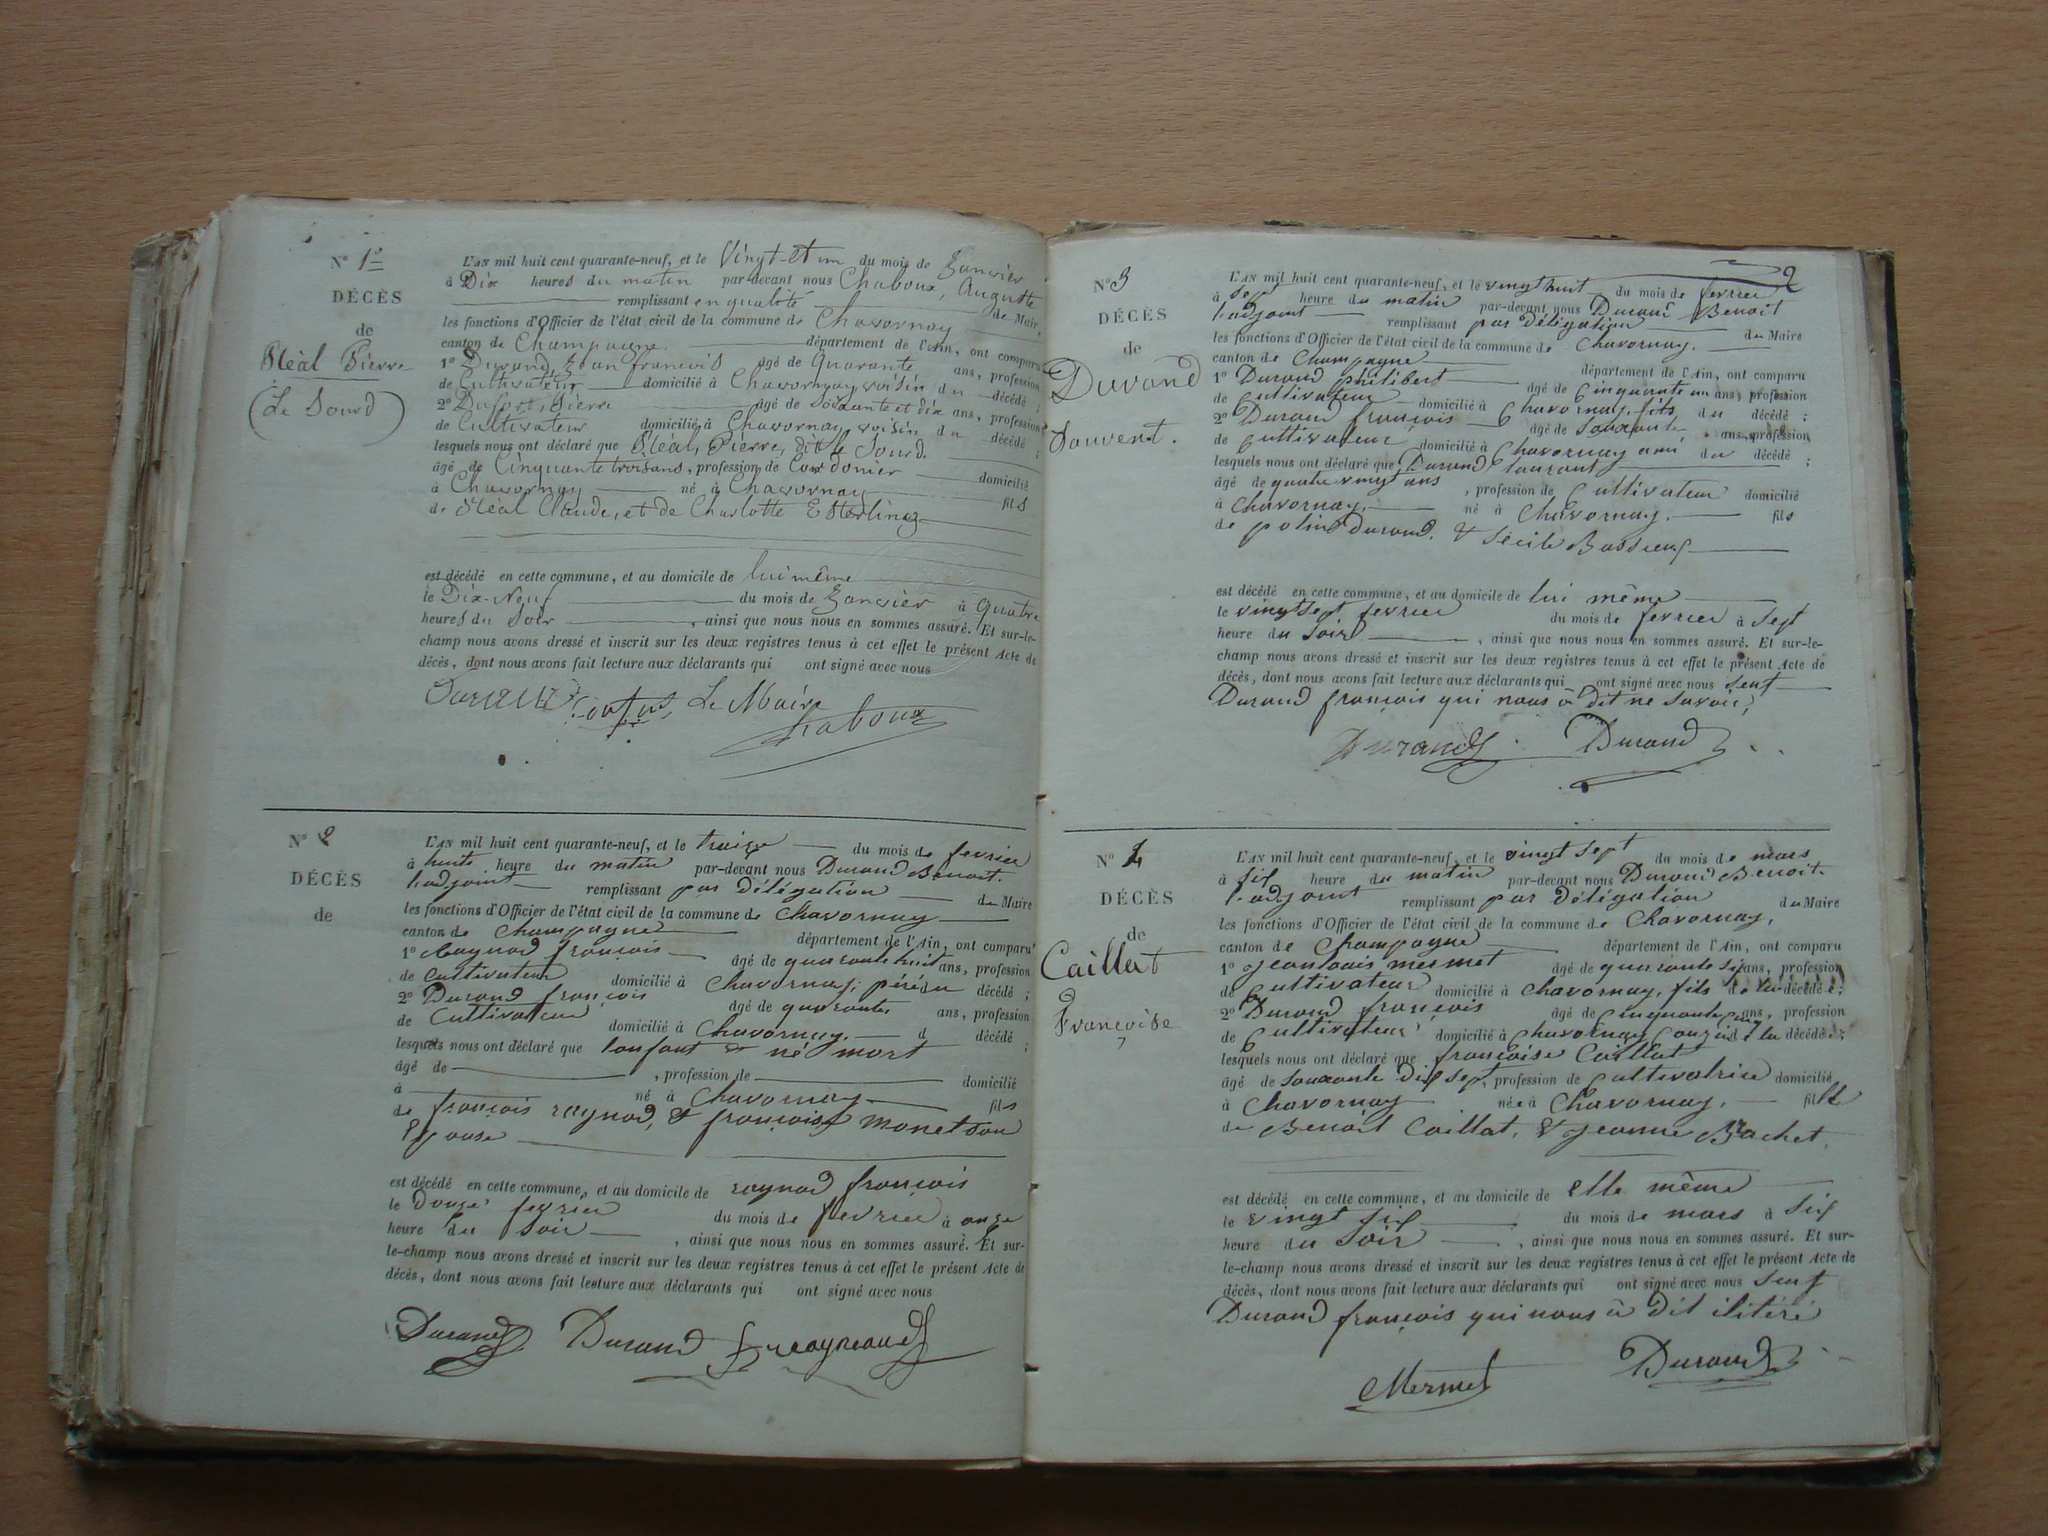 N° 1er
DÉCÈS
de
Pierre
(Le Sourd)
L'AN mil huit cent quarante-neuf, et le Vingt-et un du mois de Janvier
à Dix heures du matin par-devant nous Chaboux, Auguste
remplissant en qualité de Maire,
les fonctions d'Officier de l'état civil de la commune de Chavornay
canton de Champagne département de l'Ain, ont comparu
1° Durand, Jean françois âgé de Quarante ans, profession
de Cultivateur domicilié à Chavornay voisin du décédé ;
2° Pierre âgé de soixante et dix ans, profession
de Cultivateur domicilié à Chavornay voisin du décédé ;
lesquels nous ont déclaré que Pierre, dit le Sourd.
âgé de Cinquante trois ans, profession de Cordonier domicilié
à Chavornay né à Chavornay fils
de Claude, et de Charlotte
est décédé en cette commune, et au domicile de lui même
le Dix-Neuf du mois de Janvier à Quatre
heures du Soir, ainsi que nous nous en sommes assuré. Et sur-le-
champ nous avons dressé et inscrit sur les deux registres tenus à cet effet le présent Acte de
décès, dont nous avons fait lecture aux déclarants qui ont signé avec nous
Le Maire
Chaboux
N° 2
DÉCÈS
de
L'AN mil huit cent quarante-neuf, et le treize du mois de fevrier
à huits heure du matin par-devant nous Durand Benoit.
l'adjoint remplissant par Délégation du Maire
les fonctions d'Officier de l'état civil de la commune de Chavornay
canton de Champagne département de l'Ain, ont comparu
1° Raynod françois âgé de quarante huit ans, profession
de Cultivateur domicilié à Chavornay, père du décédé ;
2° Durand françois âgé de quarante ans, profession
de Cultivateur domicilié à Chavornay. d décédé ;
lesquels nous ont déclaré que l'enfant & né mort
âgé de , profession de domicilié
à né à Chavornay fils
de françois raynod, & françoise monet son
Epouse
est décédé en cette commune, et au domicile de raynod françois
le Douze fevrier du mois de fevrier à onze
heure du Soir , ainsi que nous nous en sommes assuré. Et sur-
le-champ nous avons dressé et inscrit sur les deux registres tenus à cet effet le présent Acte de
décès, dont nous avons fait lecture aux déclarants qui ont signé avec nous
Durand Durand fr raynaud
2
N° 3
DÉCÈS
de
Durand
L'AN mil huit cent quarante-neuf, et le vingt huit du mois de fevrier
à Sept heure du matin par-devant nous Durand Benoit
l'adjoint remplissant par Délégation du Maire
les fonctions d'Officier de l'état civil de la commune de Chavornay.
canton de Champagne département de l'Ain, ont comparu
1° Durand philibert âgé de Cinquante un ans, profession
de Cultivateur domicilié à Chavornay, fils du décédé ;
2° Durand françois âgé de Souxante ans, profession
de Cultivateur domicilié à Chavornay ami du décédé ;
lesquels nous ont déclaré que Durand laurant
âgé de quatre vingt ans , profession de Cultivateur domicilié
à Chavornay. né à Chavornay. fils
de Durand. & Sécile
est décédé en cette commune, et au domicile de lui même
le vingt Sept fevrier du mois de fevrier à Sept
heure du Soir , ainsi que nous nous en sommes assuré. Et sur-le-
champ nous avons dressé et inscrit sur les deux registres tenus à cet effet le présent Acte de
décès, dont nous avons fait lecture aux déclarants qui ont signé avec nous Senf
Durand françois qui nous à Dit ne Savoir,
Durand Durand
N° 4
DÉCÈS
de
Caillat
Françoise
L'AN mil huit cent quarante-neuf, et le vingt Sept du mois de mars
à Six heure du matin par-devant nous Durand Benoit
l'adjoint remplissant par Délégation du Maire
les fonctions d'Officier de l'état civil de la commune de Chavornay,
canton de Champagne département de l'Ain, ont comparu
1° Jean louis mermet âgé de quarante Six ans, profession
de Cultivateur domicilié à Chavornay, fils de la décédée ;
2° Durand françois âgé de Cinquante ans, profession
de Cultivateur domicilié à Chavornay Couzin de la décédée ;
lesquels nous ont déclaré que françoise Caillat
âgé de Souxante Dix Sept, profession de Cultivatrice domicilié
à Chavornay née à Chavornay. fille
de Benoit Caillat, & Jeanne Brachet.
est décédé en cette commune, et au domicile de Elle même
le vingt Six du mois de mars à Six
heure du Soir , ainsi que nous nous en sommes assuré. Et sur-
le-champ nous avons dressé et inscrit sur les deux registres tenus à cet effet le présent Acte de
décès, dont nous avons fait lecture aux déclarants qui ont signé avec nous Senf
Durand françois qui nous à Dit ilitéré
Mermet Durand